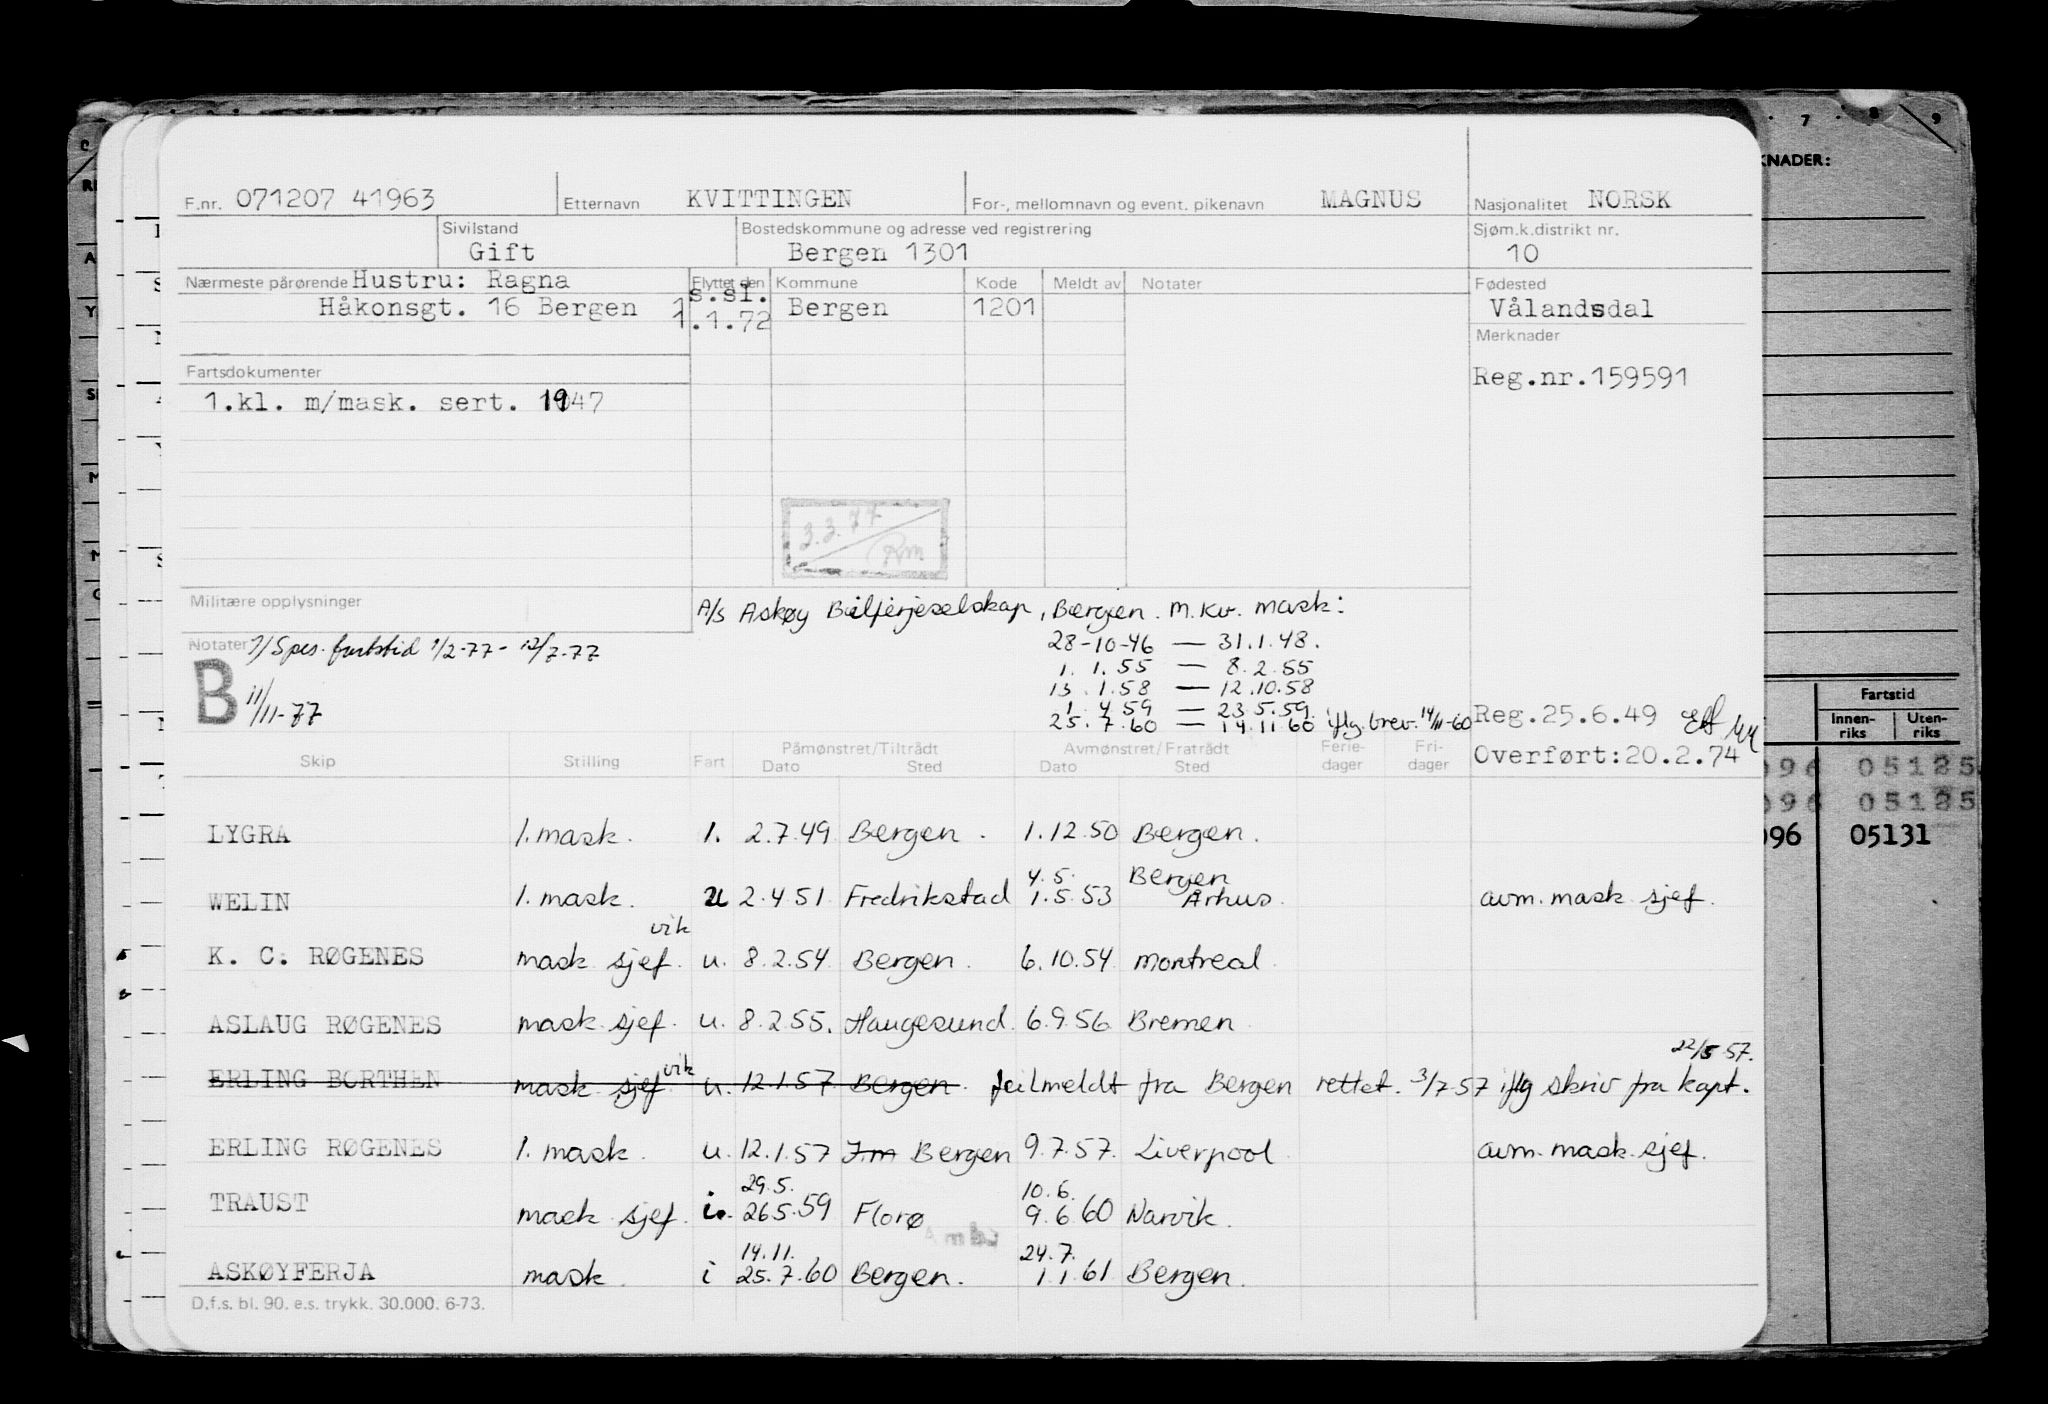 F.nr. 071207 41963 Etternavn KVITTINGEN For-, mellomnavn og event. pikenavn MAGNUS Nasjonalitet NORSK
Sivilstand Gift Bostedskommune og adresse ved registrering Bergen 1301 Sjøm.k.distrikt nr. 10
Nærmeste pårørende Hustru: Ragna Flyttet den Kommune Kode Meldt av Notater Fødested
Håkonsgt. 16 Bergen s.sl. 1.1.72 Bergen 1201 Vålandsdal
Merknader
Fartsdokumenter Reg.nr.159591
1.kl. m/mask. sert. 1947
3.3.77
Rm
Militære opplysninger A/S Askøy Bilferjeselskap, Bergen. M. Kv. mask:
Notater 7/ Spes. fartstid 1/2-77 - 12/7-77 28-10-46 — 31.1.48.
1. 1. 55 — 8.2.55
B 11/11-77 13.1.58 — 12.10.58
1 4 59 — 23.5.59
25.7.60 — 14.11.60 iflg. brev. 14/11-60
Reg.25.6.49
Overført:20.2.74
Skip Stilling Fart Påmønstret/Tiltrådt Avmønstret/Fratrådt Ferie- Fri-
Dato Sted Dato Sted dager dager
LYGRA 1. mask. 1. 2.7.49 Bergen. 1.12.50 Bergen.
4.5. Bergen
WELIN 1. mask. u 2.4.51 Fredrikstad 1.5.53 Århus. avm. mask sjef.
vik
K. C. RØGENES mask sjef. u. 8.2.54 Bergen. 6.10.54 Montreal.
ASLAUG RØGENES mask sjef. u. 8.2.55. Haugesund. 6.9.56 Bremen
vik 22/5 57.
ERLING BORTHEN mask sjef u. 12.1.57 Bergen. feilmeldt fra Bergen rettet. 3/7-57 iflg skriv fra kapt.
ERLING RØGENES 1. mask. u. 12.1.57 Im Bergen 9.7.57. Liverpool avm. mask sjef.
29.5. 10.6.
TRAUST mask sjef. i. 26.5.59 Florø 9.6.60 Narvik.
14.11. 24.7.
ASKØYFERJA mask. i 25.7.60 Bergen. 1.1.61 Bergen.
D.f.s. bl. 90. e.s. trykk. 30.000. 6-73.
7 8 9
KNADER:
Fartstid
Innen-riks Uten-riks
096 05125
096 05125
096 05131